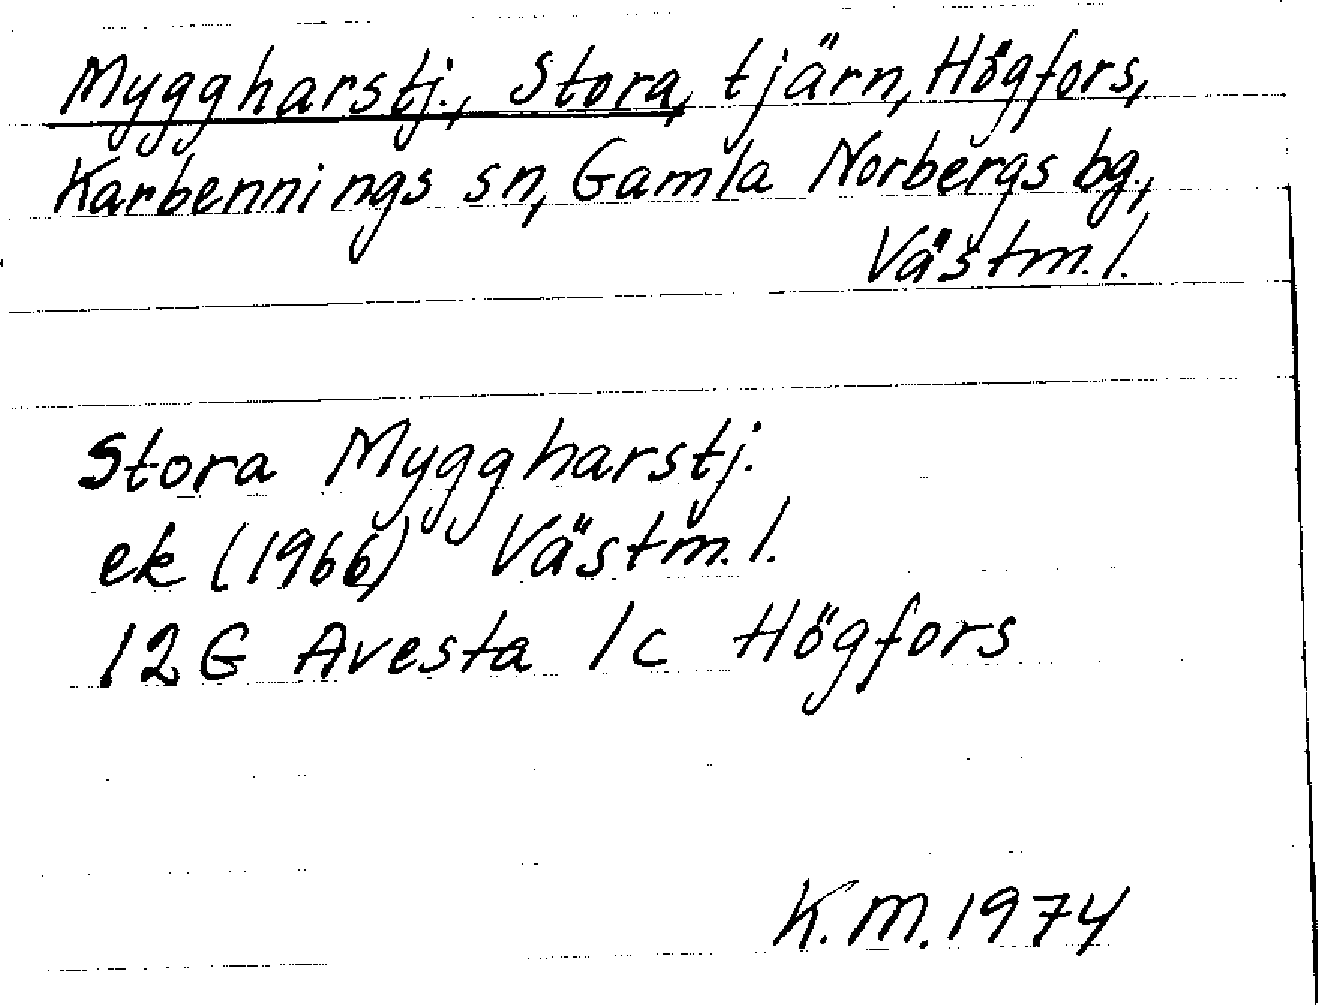 Myggharstj., Stora, tjärn, Högfors,
Karbennings sn, Gamla Norbergs bg.,
Västm. l.
Stora Myggharstj.
ek (1966) Västm. l.
12G Avesta 1c Högfors
K.M. 1974